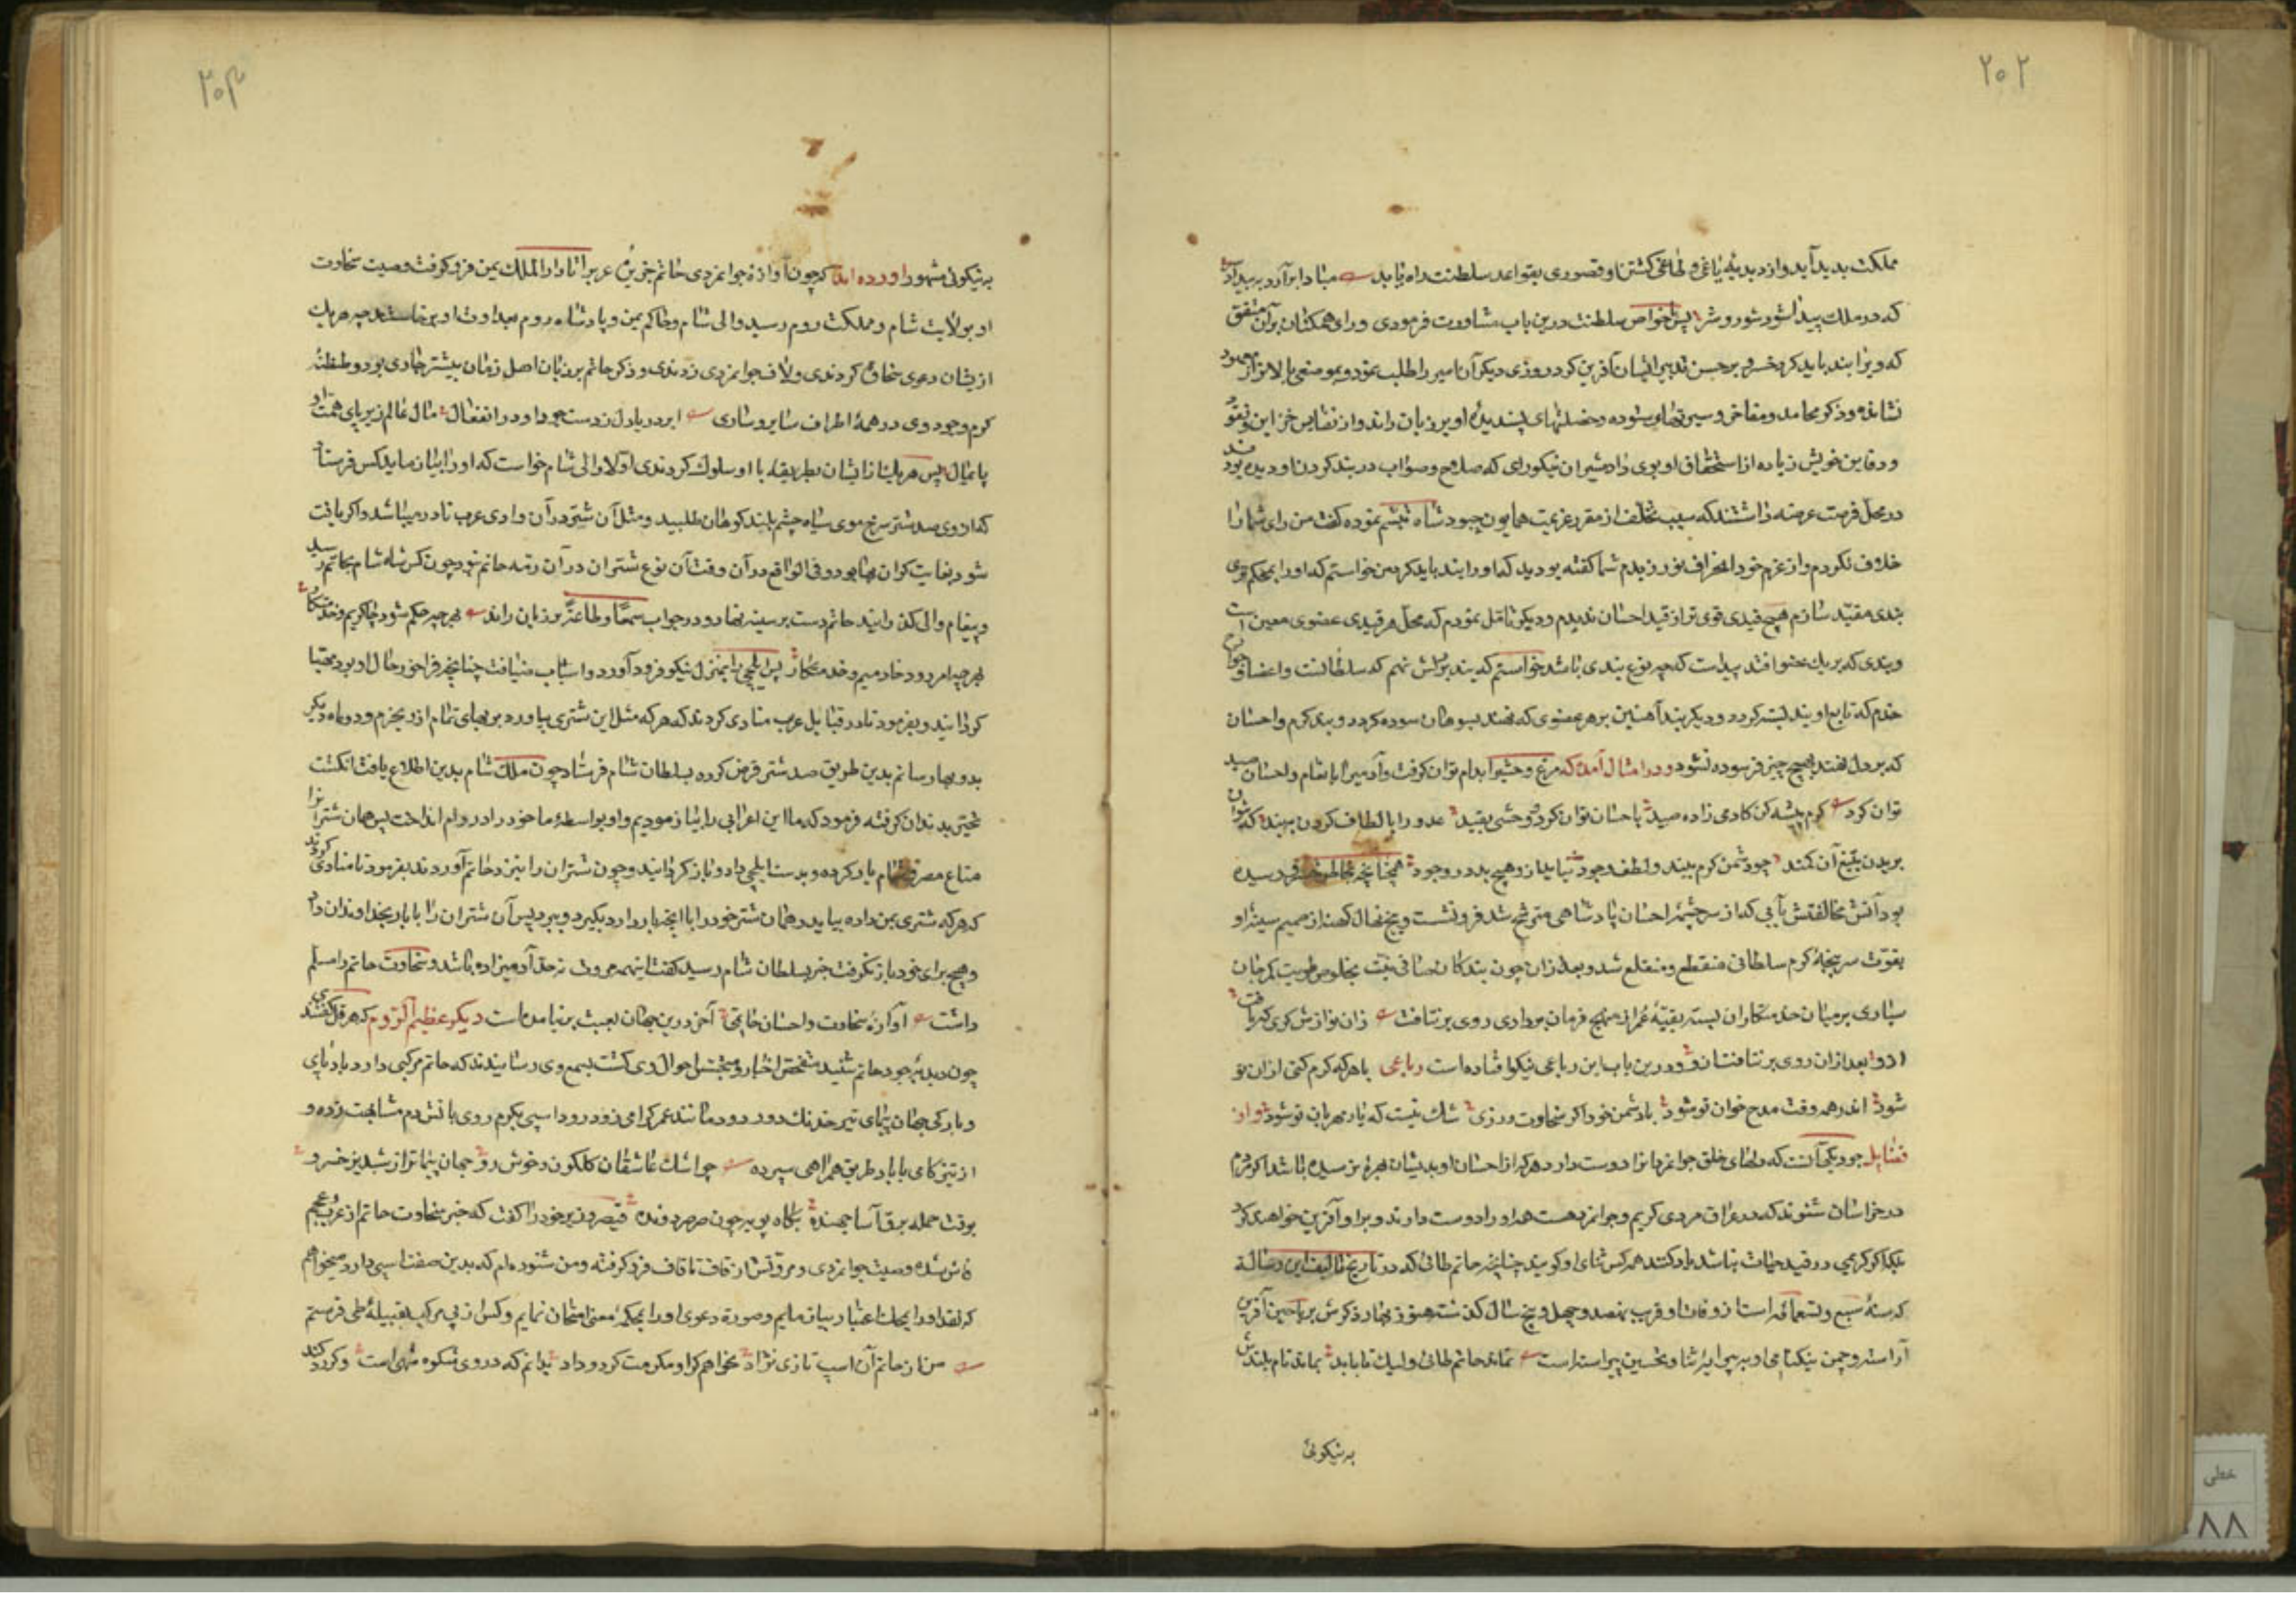 ۲۰۲
مملکت پدید آید و از دبدبهٔ یاغی و طاغی گشتن او قصوری بقواعد سلطنت راه یابد مبادا برآرد به بیداد
که در ملک پیدا شود شور و شر پس خواص سلطنت درین باب مشاورت فرمودی و رای همکنان برآن متفق
که ویرا بند باید کرد خسرو بر حسن تدبیر ایشان آفرین کرد و روزی دیگر آن امیر را طلب نمود و بموضعی بالاتر از معهود
نشانده و ذکر محامد و مفاخر و سیرتهای ستوده و خصلتهای پسندیدهٔ او بر زبان راند و از نفایس خزاین و نقود
و دفاین خویش زیاده از استحقاق او بوی داد مشیران نیکورای که صلاح و صواب در بند کردن او دیده بودند
در محل فرصت عرضه داشتند که سبب تخلف از مقرر عزیمت همایون چه بود شاه تبسم نموده گفت من رای شما را
خلاف نکردم و از عزم خود انحراف نورزیدم شما گفته بودید که او را بند باید کرد من خواستم که او را بمحکم‌ترین
بندی مقید سازم هیچ قیدی قوی‌تر از قید احسان ندیدم و دیگر تأمل نمودم که محل هر قیدی عضوی معین است
و بندی که بر یک عضو افتد پیداست که چه نوع بندی باشد خواستم که بند بر دلش نهم که سلطانست و اعضا و جوارح
خدم که تابع او بند بسته گردد و دیگر بند آهنین بر هر عضوی که نهند بسوهان سوده گردد و بند کرم و احسان
که بر دل نهند بهیچ چیز فرسوده نشود و در امثال آمده که مرغ وحشی را بدام توان گرفت و آدمی را بانعام و احسان صید
توان کرد کرم پیشه کن کادمی زاده صید باحسان توان کرد و وحشی بقید عدو را بالطاف گردن ببند که نتوان
بریدن بتیغ آن کمند چو دشمن کرم بیند و لطف و جود نیاید ازو هیچ بد در وجود همچنانچه بخاطر خسرو رسیده
بود آتش مخالفتش بآبی که از سرچشمهٔ احسان پادشاهی مترشح شد فرو نشست و بیخ نهال کینه از صمیم سینهٔ او
بقوت سرپنجهٔ کرم سلطانی منقطع و منقلع شد و بعد از آن چون بندگان صافی نیت بخلوص طویت کمر جان
سپاری بر میان خدمتکاران بسته بقیهٔ عمر از منهج فرمان برداری روی برنتافت زان نوازش گری که یافت
ازو بعد از ان روی برنتافت ازو و درین باب این رباعی نیکو افتاده است رباعی با هر که کرم کنی از آن تو
شود اندر همه وقت مدح خوان تو شود با دشمن خود اگر سخاوت ورزی شک نیست که یار مهربان تو شود و از
فضایل جود یکی آنست که دلهای خلق جوانمرد را دوست دارد هر که از احسان او بدیشان بهره نرسیده باشد اگر مردم
در خراسان شنوند که در عراق مردی کریم و جوانمرد هست هر او را دوست دارند و بر او آفرین خواهند کرد
بلکه اگر کریمی در قید حیات نباشد یاد کنند همه کس ثنای او گویند چنانچه حاتم طائی که در تاریخ تألیف این رساله
که سنهٔ سبع و تسعمائه است از وفات او قریب نهصد و چهل و پنج سال گذشته هنوز بهار ذکرش بریاحین آفرین
آراسته و چمن نیکنامی او به پیرایهٔ ثنا و تحسین پیراسته است نماند حاتم طائی ولیک تا بابد بماند نام بلندش
به نیکوئی
۲۰۳
به نیکوئی مشهور آورده اند که چون آوازهٔ جوانمردی حاتم جزیرهٔ عرب را تا دار الملک یمن فرو گرفت و صیت سخاوت
او بولایت شام و مملکت روم رسید والی شام و حاکم یمن و پادشاه روم بعداوت او برخاستند چه هر یک
ازیشان دعوی سخاوت کردندی و لاف جوانمردی زدندی و ذکر حاتم بر زبان اهل زمان بیشتر جاری بود و طنطنهٔ
کرم و جود وی در همهٔ اطراف سایر و ساری ابر دریا دل ز دست جود او در انفعال مال عالم زیر پای همت او
پایمال پس هر یک از ایشان بطریقه با او سلوک کردندی اولا والی شام خواست که او را بیازماید کس فرستاد
که از وی صد شتر سرخ موی سیاه چشم بلند کوهان طلبید و مثل آن شتر در آن وادی عرب نادر میباشد و اگر یافت
شود بغایت گران بها بود و فی الواقع در آن وقت آن نوع شتران در آن رمهٔ حاتم نبود چون کس شاه شام بحاتم رسید
و پیغام والی گذرانید حاتم دست بر سینه نهاد و در جواب سمعا و طاعة بر زبان راند بهر چه حکم شود چاکریم و خدمتکار
بهر چه امر رود خادمیم و خدمتکار پس ایلچی را بمنزل نیکو فرود آورد و اسباب ضیافت چنانچه فراخور حال او بود مهیا
گردانید و بفرمود تا در قبایل عرب منادی کردند که هر که مثل این شتری بیاورد بر بهای تمام ازو بخرم و دو ماه دیگر
بدو بها رسانم بدین طریق صد شتر قرض کرده بسلطان شام فرستاد چون ملک شام بدین اطلاع یافت انگشت
تحیر بدندان گرفته فرمود که ما این اعرابی را بیازمودیم و او بواسطهٔ ما خود را در وام انداخت پس همان شتران را
متاع مصر و شام بار کرده و بدست ایلچی داد و باز گردانید و چون شتران را بنزد حاتم آوردند بفرمود تا منادی کردند
که هر که شتری بمن داده بیاید و همان شتر خود را با آنچه بار دارد بگیرد و ببرد پس آن شتران را با بار بخداوندان داد
و هیچ برای خود باز نگرفت خبر بسلطان شام رسید گفت اینهمه مروت نه حد آدمیزاده باشد و سخاوت حاتم را مسلم
داشت آوازهٔ سخاوت و احسان حاتمی آخر درین جهان بعبث بر نیامده است دیگر عظیم الروم که هرقل گفتندی
چون دبدبهٔ جود حاتم شنید متفحص اخبار و متجسس احوال وی گشت بسمع وی رسانیدند که حاتم مرکبی دارد بادپای
و بارگی جهان پیمای تیر خدنگ دور دود مانند عمر گرامی زود رود اسپی بکرم روی باتش دم مشابهت زده و
از تیز گامی با باد طریق همراهی سپرده چو اشک عاشقان گلگون و خوش رو جهان پیماتر از شبدیز خسرو
بوقت حمله برق آسا جهنده بگاه پویه چون صرصر دونده قیصر وزیر خود را گفت که خبر سخاوت حاتم از عرب و عجم
فاش شده و صیت جوانمردی و مروتش از قاف تا قاف فرو گرفته و من شنوده ام که بدین صفت اسپی دارد میخواهم
که نقد او را بمحک اعتبار بیازمایم و صورة دعوی او را بمحکمهٔ معنی امتحان نمایم و کس از پی مرکب بقبیلهٔ طی فرستم
من از حاتم آن اسپ تازی نژاد بخواهم گر او مکرمت کرد و داد بدانم که در وی شکوه مهی است وگر رد کند
خطی
۸۸